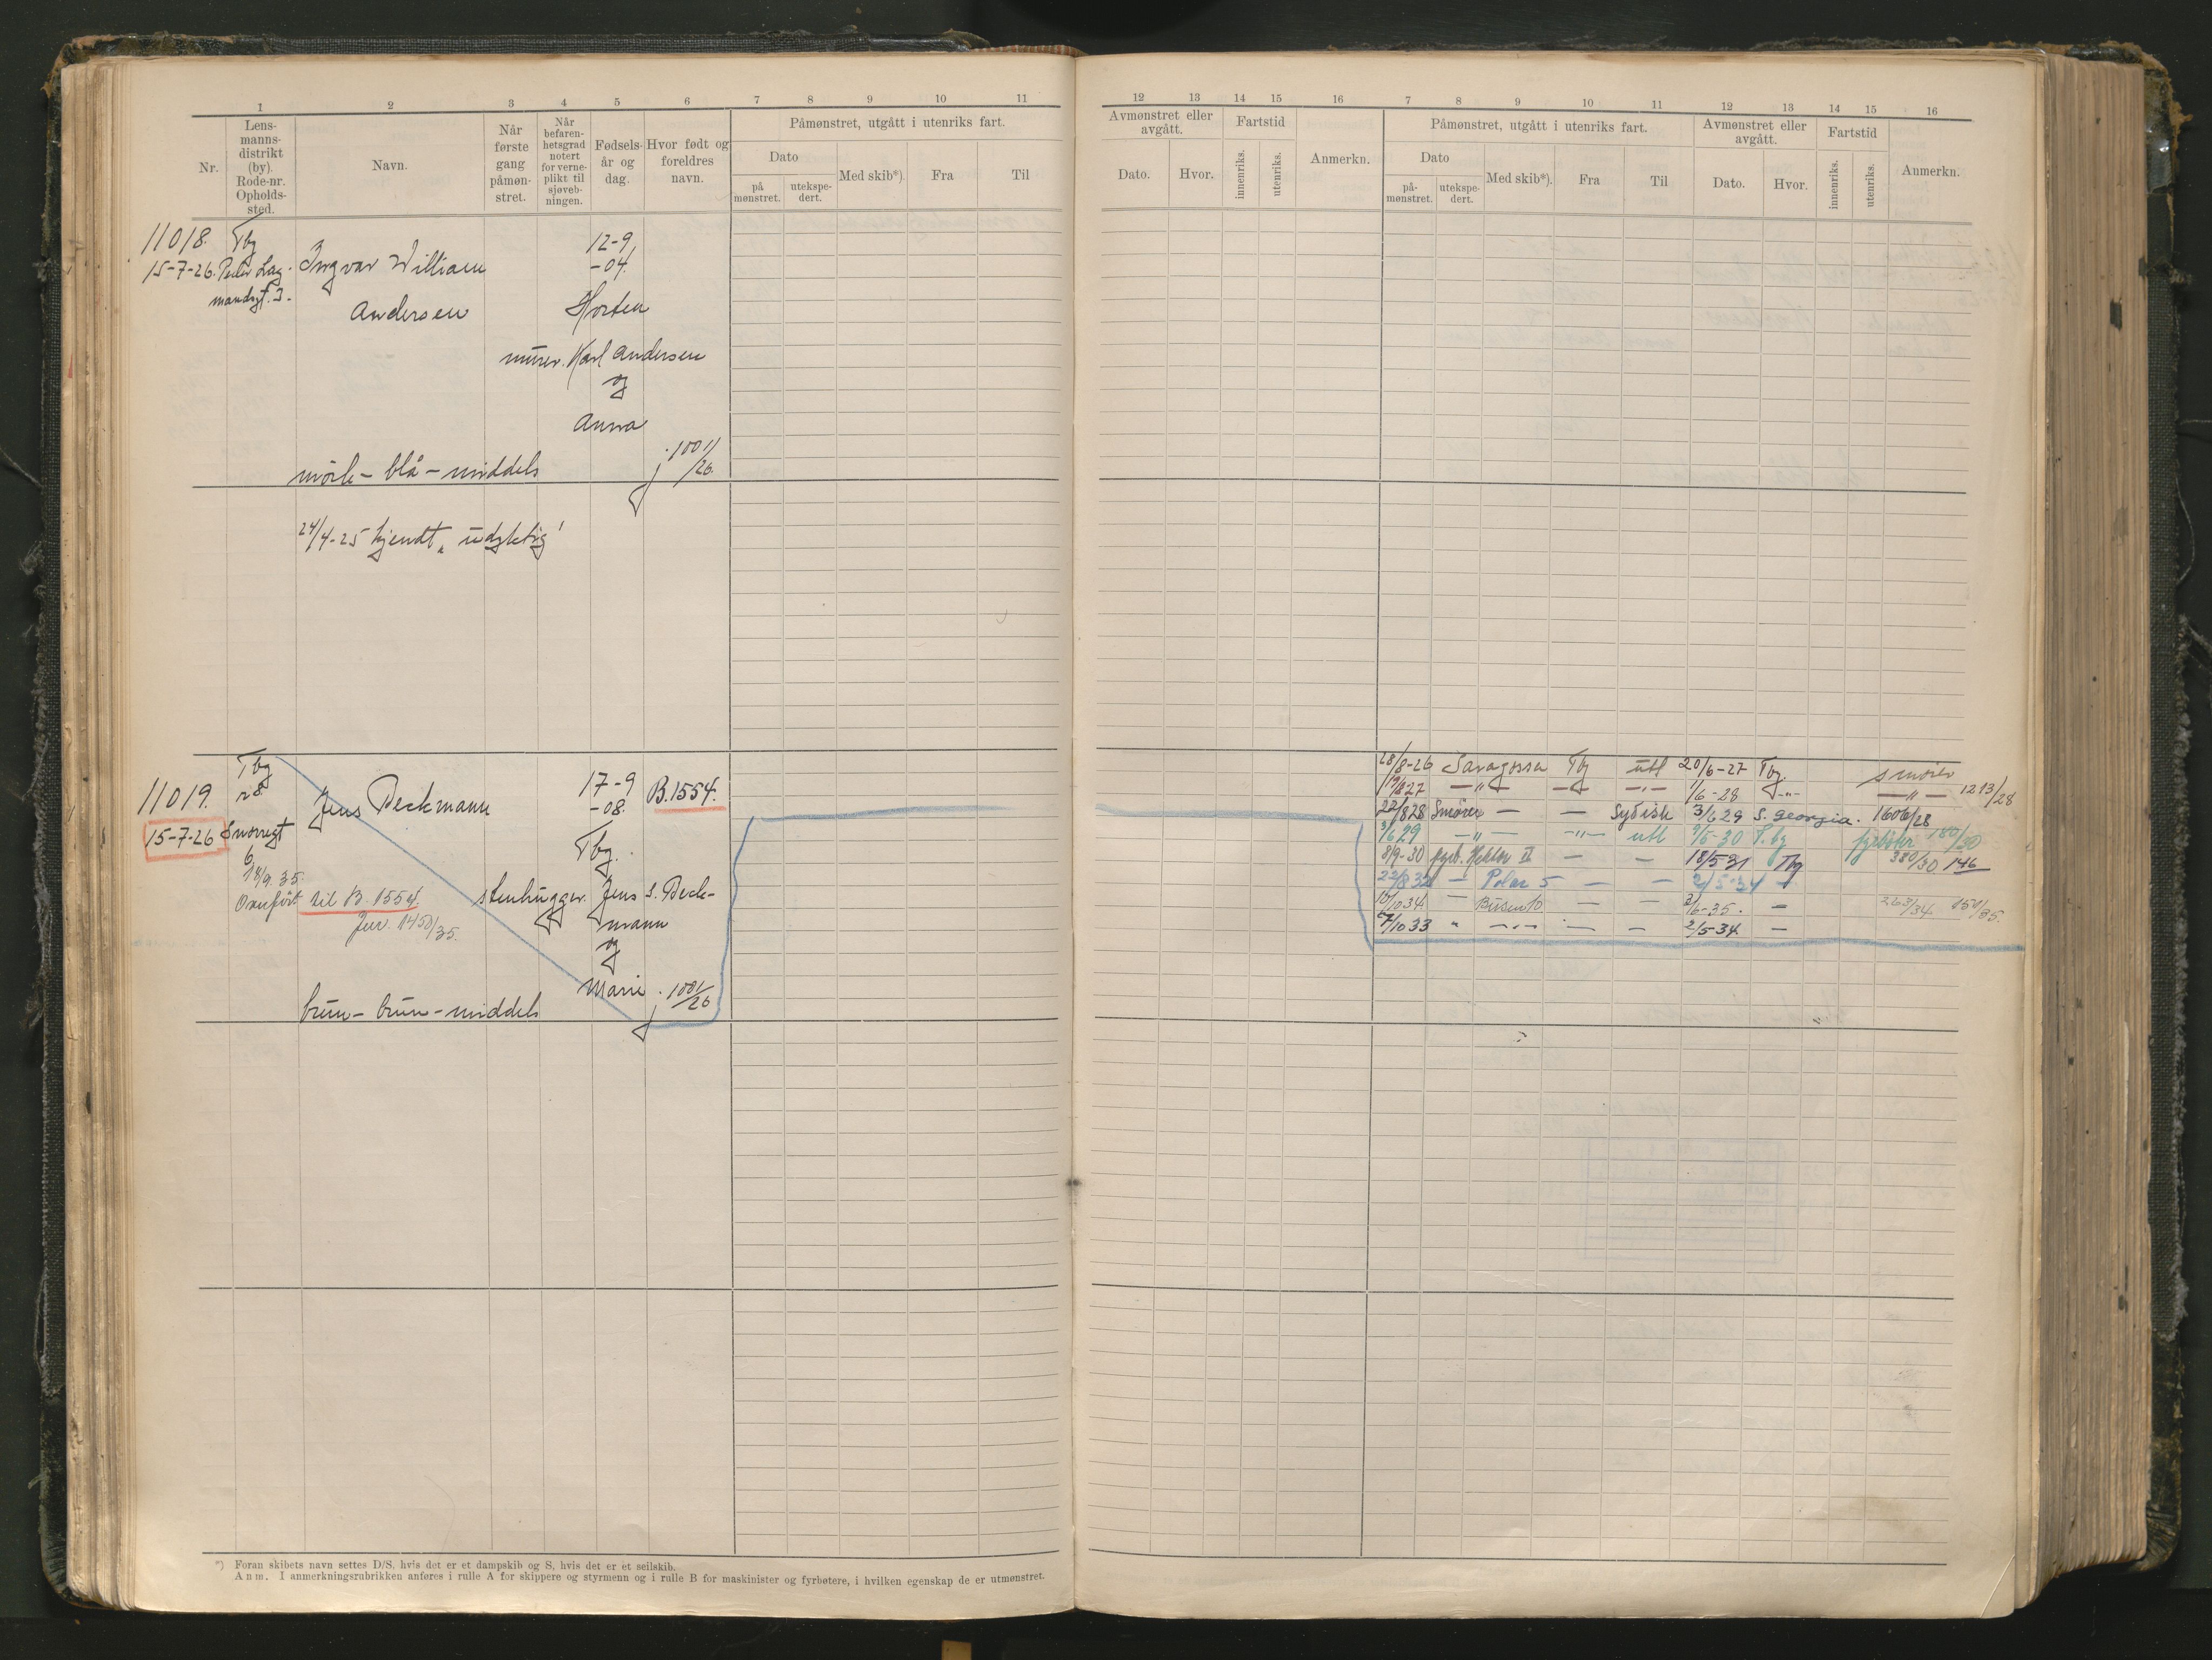 1 2 3 4 5 6 7 8 9 10 11
Nr.
Lens-
manns-
distrikt
(by).
Rode-nr.
Opholds-
sted.
Navn.
Når
første
gang
påmøn-
stret.
Når
befaren-
hetsgrad
notert
for verne-
plikt til
sjøveb-
ningen.
Fødsels-
år og
dag.
Hvor født og
foreldres
navn.
Påmønstret, utgått i utenriks fart.
Dato
på
mønstret.
utekspe-
dert.
Med skib*).
Fra
Til
11018. Tbg
15-7-26. Peder Lag-
mandsgt. 3.
Ingvar William
Andersen
12-9
-04.
Horten
murer. Karl Andersen
og
Anna
mörk - blå - middels
j. 1001/26.
24/4-25 kjendt „udyktig"
11019.
15-7-26
Tbg
r 8.
Snorregt
6
18/9 35.
Overfört til B. 1554.
Jur. 1450/35.
Jens Beckmann
17-9
-08.
B.1554.
Tbg.
stenhugger. Jens S. Beck-
mann
og
Marie
j. 1001/26
brun - brun - middels
*) Foran skibets navn settes D/S, hvis det er et dampskib og S, hvis det er et seilskib.
Anm. I anmerkningsrubrikken anføres i rulle A for skippere og styrmenn og i rulle B for maskinister og fyrbøtere, i hvilken egenskap de er utmønstret.
12 13 14 15 16 7 8 9 10 11 12 13 14 15 16
Avmønstret eller
avgått.
Dato.
Hvor.
Fartstid
innenriks.
utenriks.
Anmerkn.
Påmønstret, utgått i utenriks fart.
Dato
på-
mønstret.
utekspe-
dert.
Med skib*).
Fra
Til
Avmønstret eller
avgått.
Dato.
Hvor.
Fartstid
innenriks.
utenriks.
Anmerkn.
28/8-26 Saragossa Tbg utl 20/6-27 Tbg. smörer
19/8 27 -"- -"- -"- 1/6-28 -"- -"- 1213/28
22/8 28 Smörer - - Sydish 3/6 29 S. Georgia. 1606/28
3/6 29 -"- -"- utl 9/5-30 T.bg fyrböter 180/30
8/9-30 fyrb. Hektor II - - 18/5 31 Tbg 380/30 146
22/8 32 - Polar 5 - - 2/5-34 -
10/10 34. - Busen 10 - - 2/6-35. - 263/34. 150/35.
7/10 33 " -"- - - 2/5-34. -